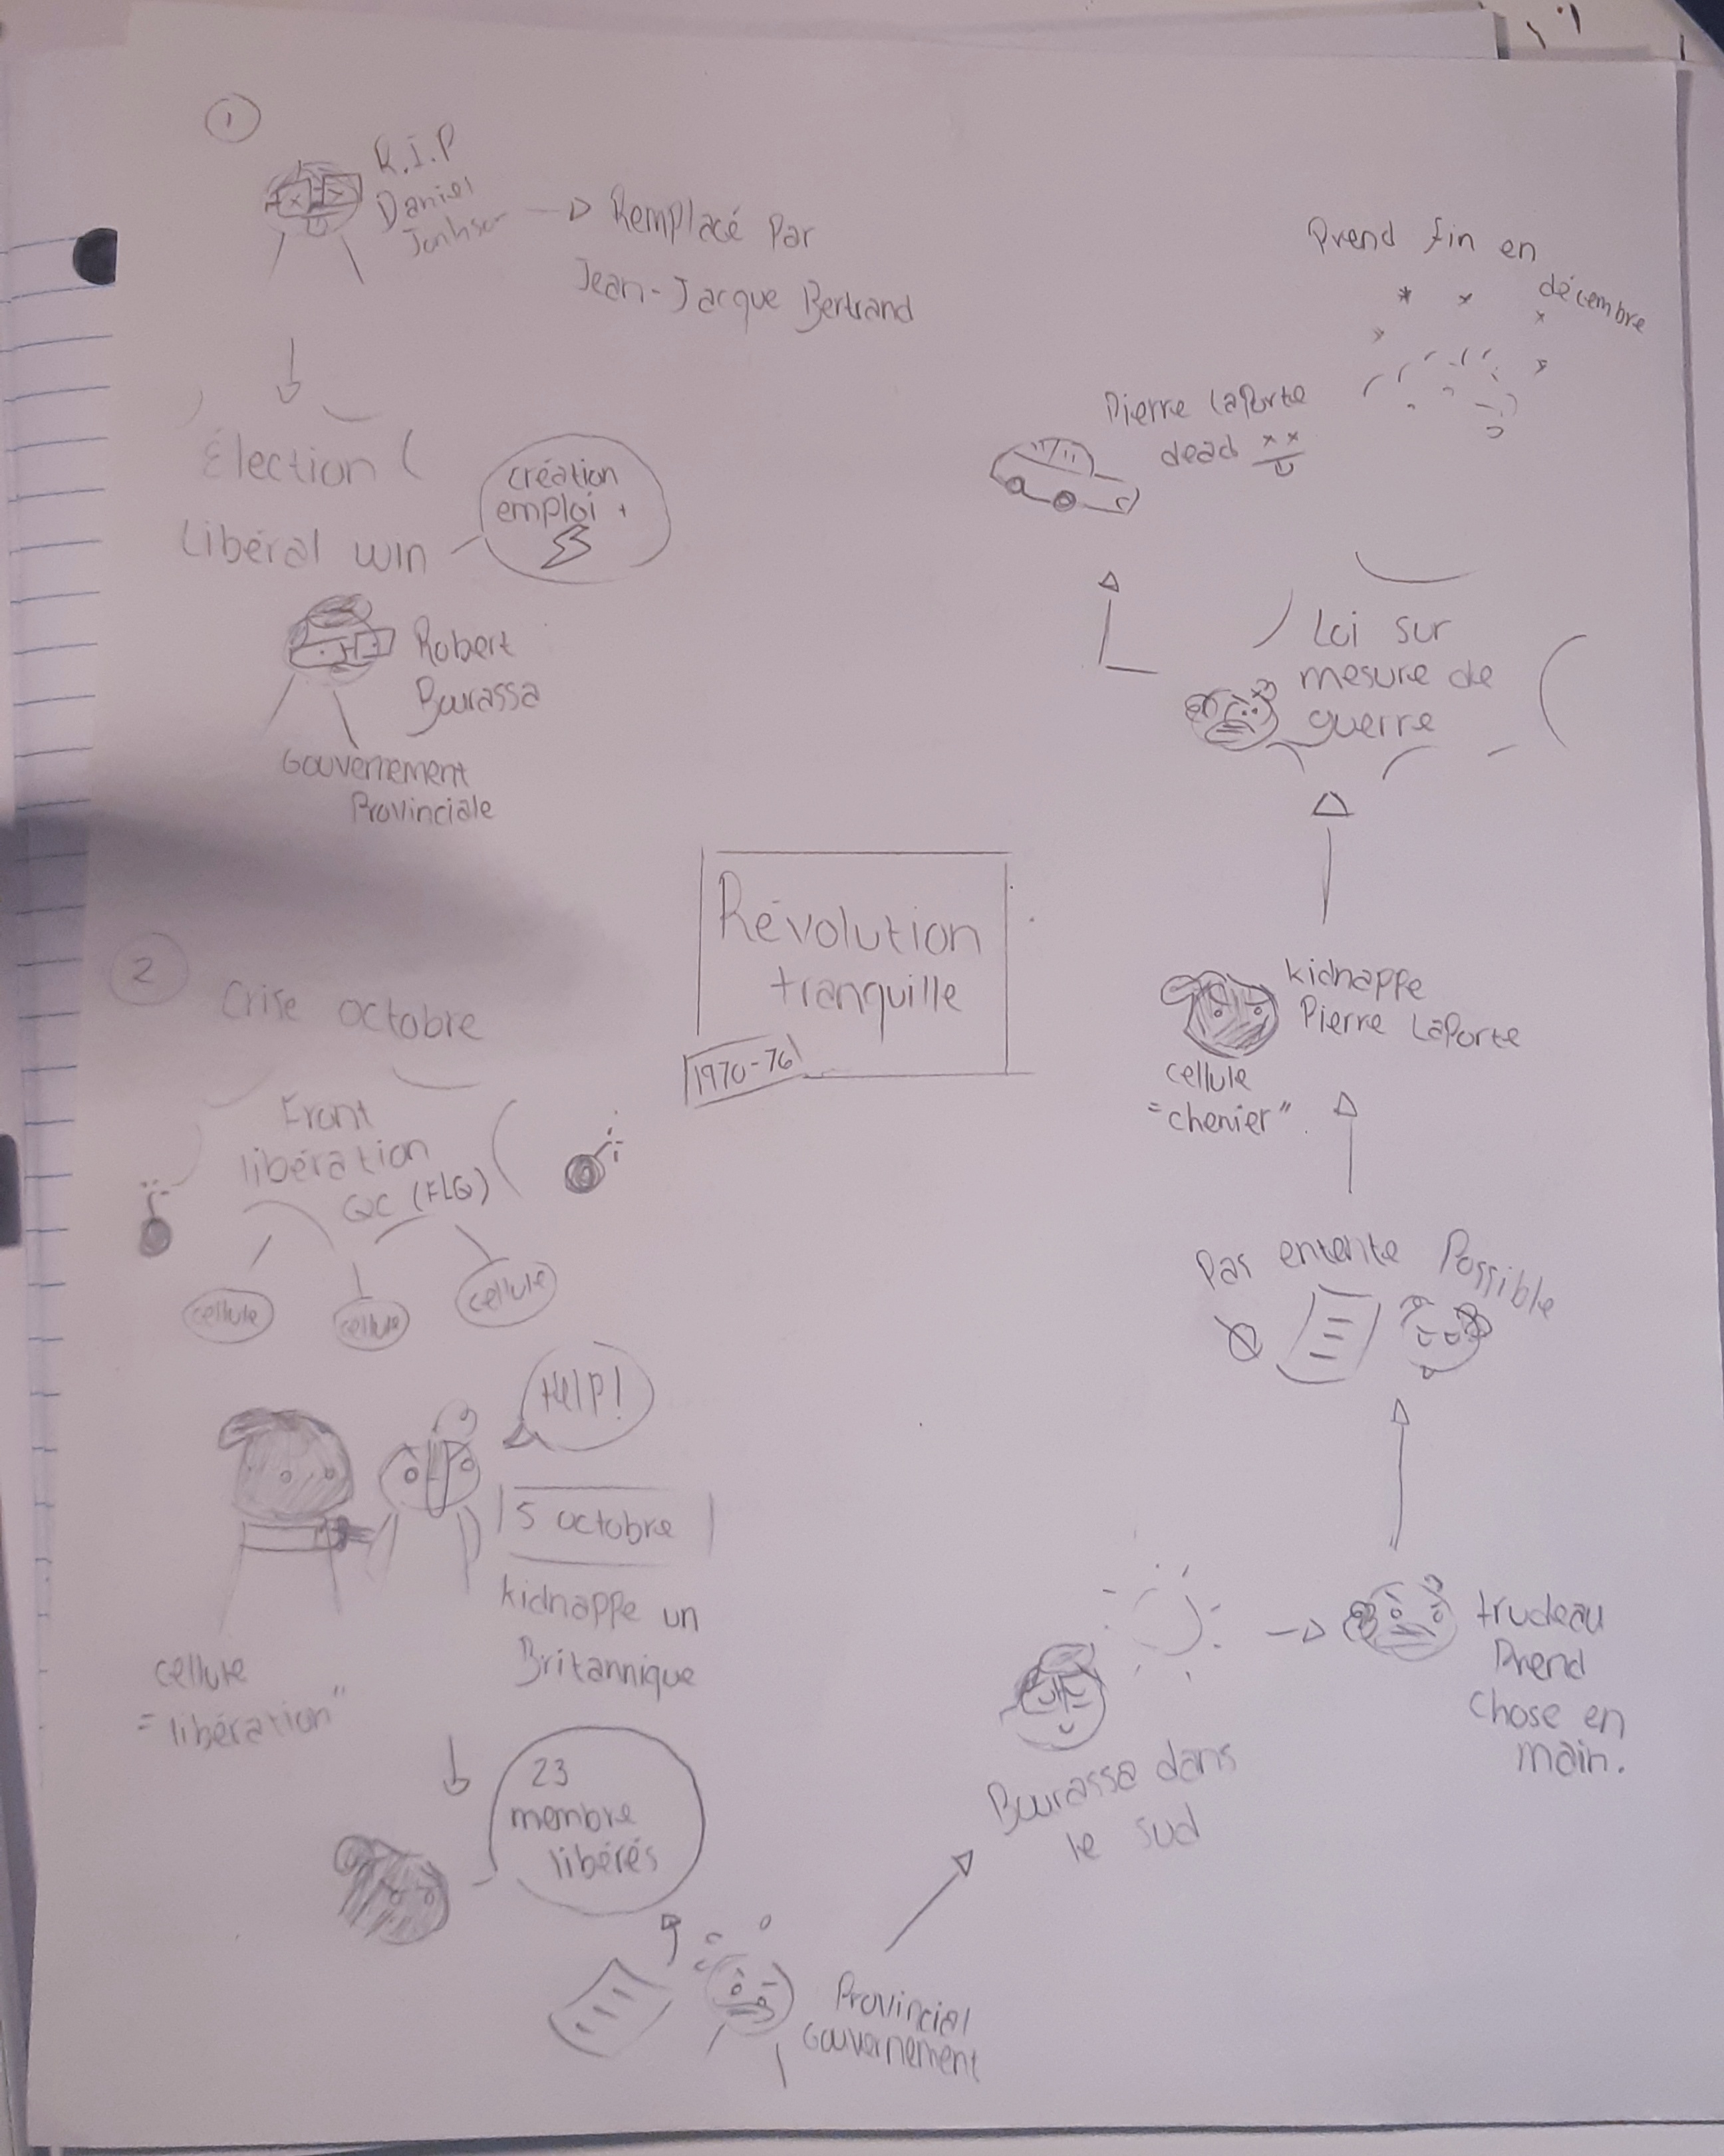 1
R.I.P
Daniel
Jonhson
Remplacé Par
Jean-Jacque Bertrand
Élection
Libéral win
création
emploi +
Robert
Bourassa
Gouvernement
Provinciale
Révolution
tranquille
1970-76
2
Crise octobre
Front
libération
QC (FLQ)
cellule
cellule
cellule
HElP!
5 octobre
kidnappe un
Britannique
cellule
= libération"
23
membre
libérés
Provincial
Gouvernement
Bourassa dans
le sud
trudeau
Prend
chose en
main.
Pas entente Possible
kidnappe
Pierre LaPorte
cellule
"chenier"
Loi sur
mesure de
guerre
Pierre LaPorte
dead
Prend fin en
décembre